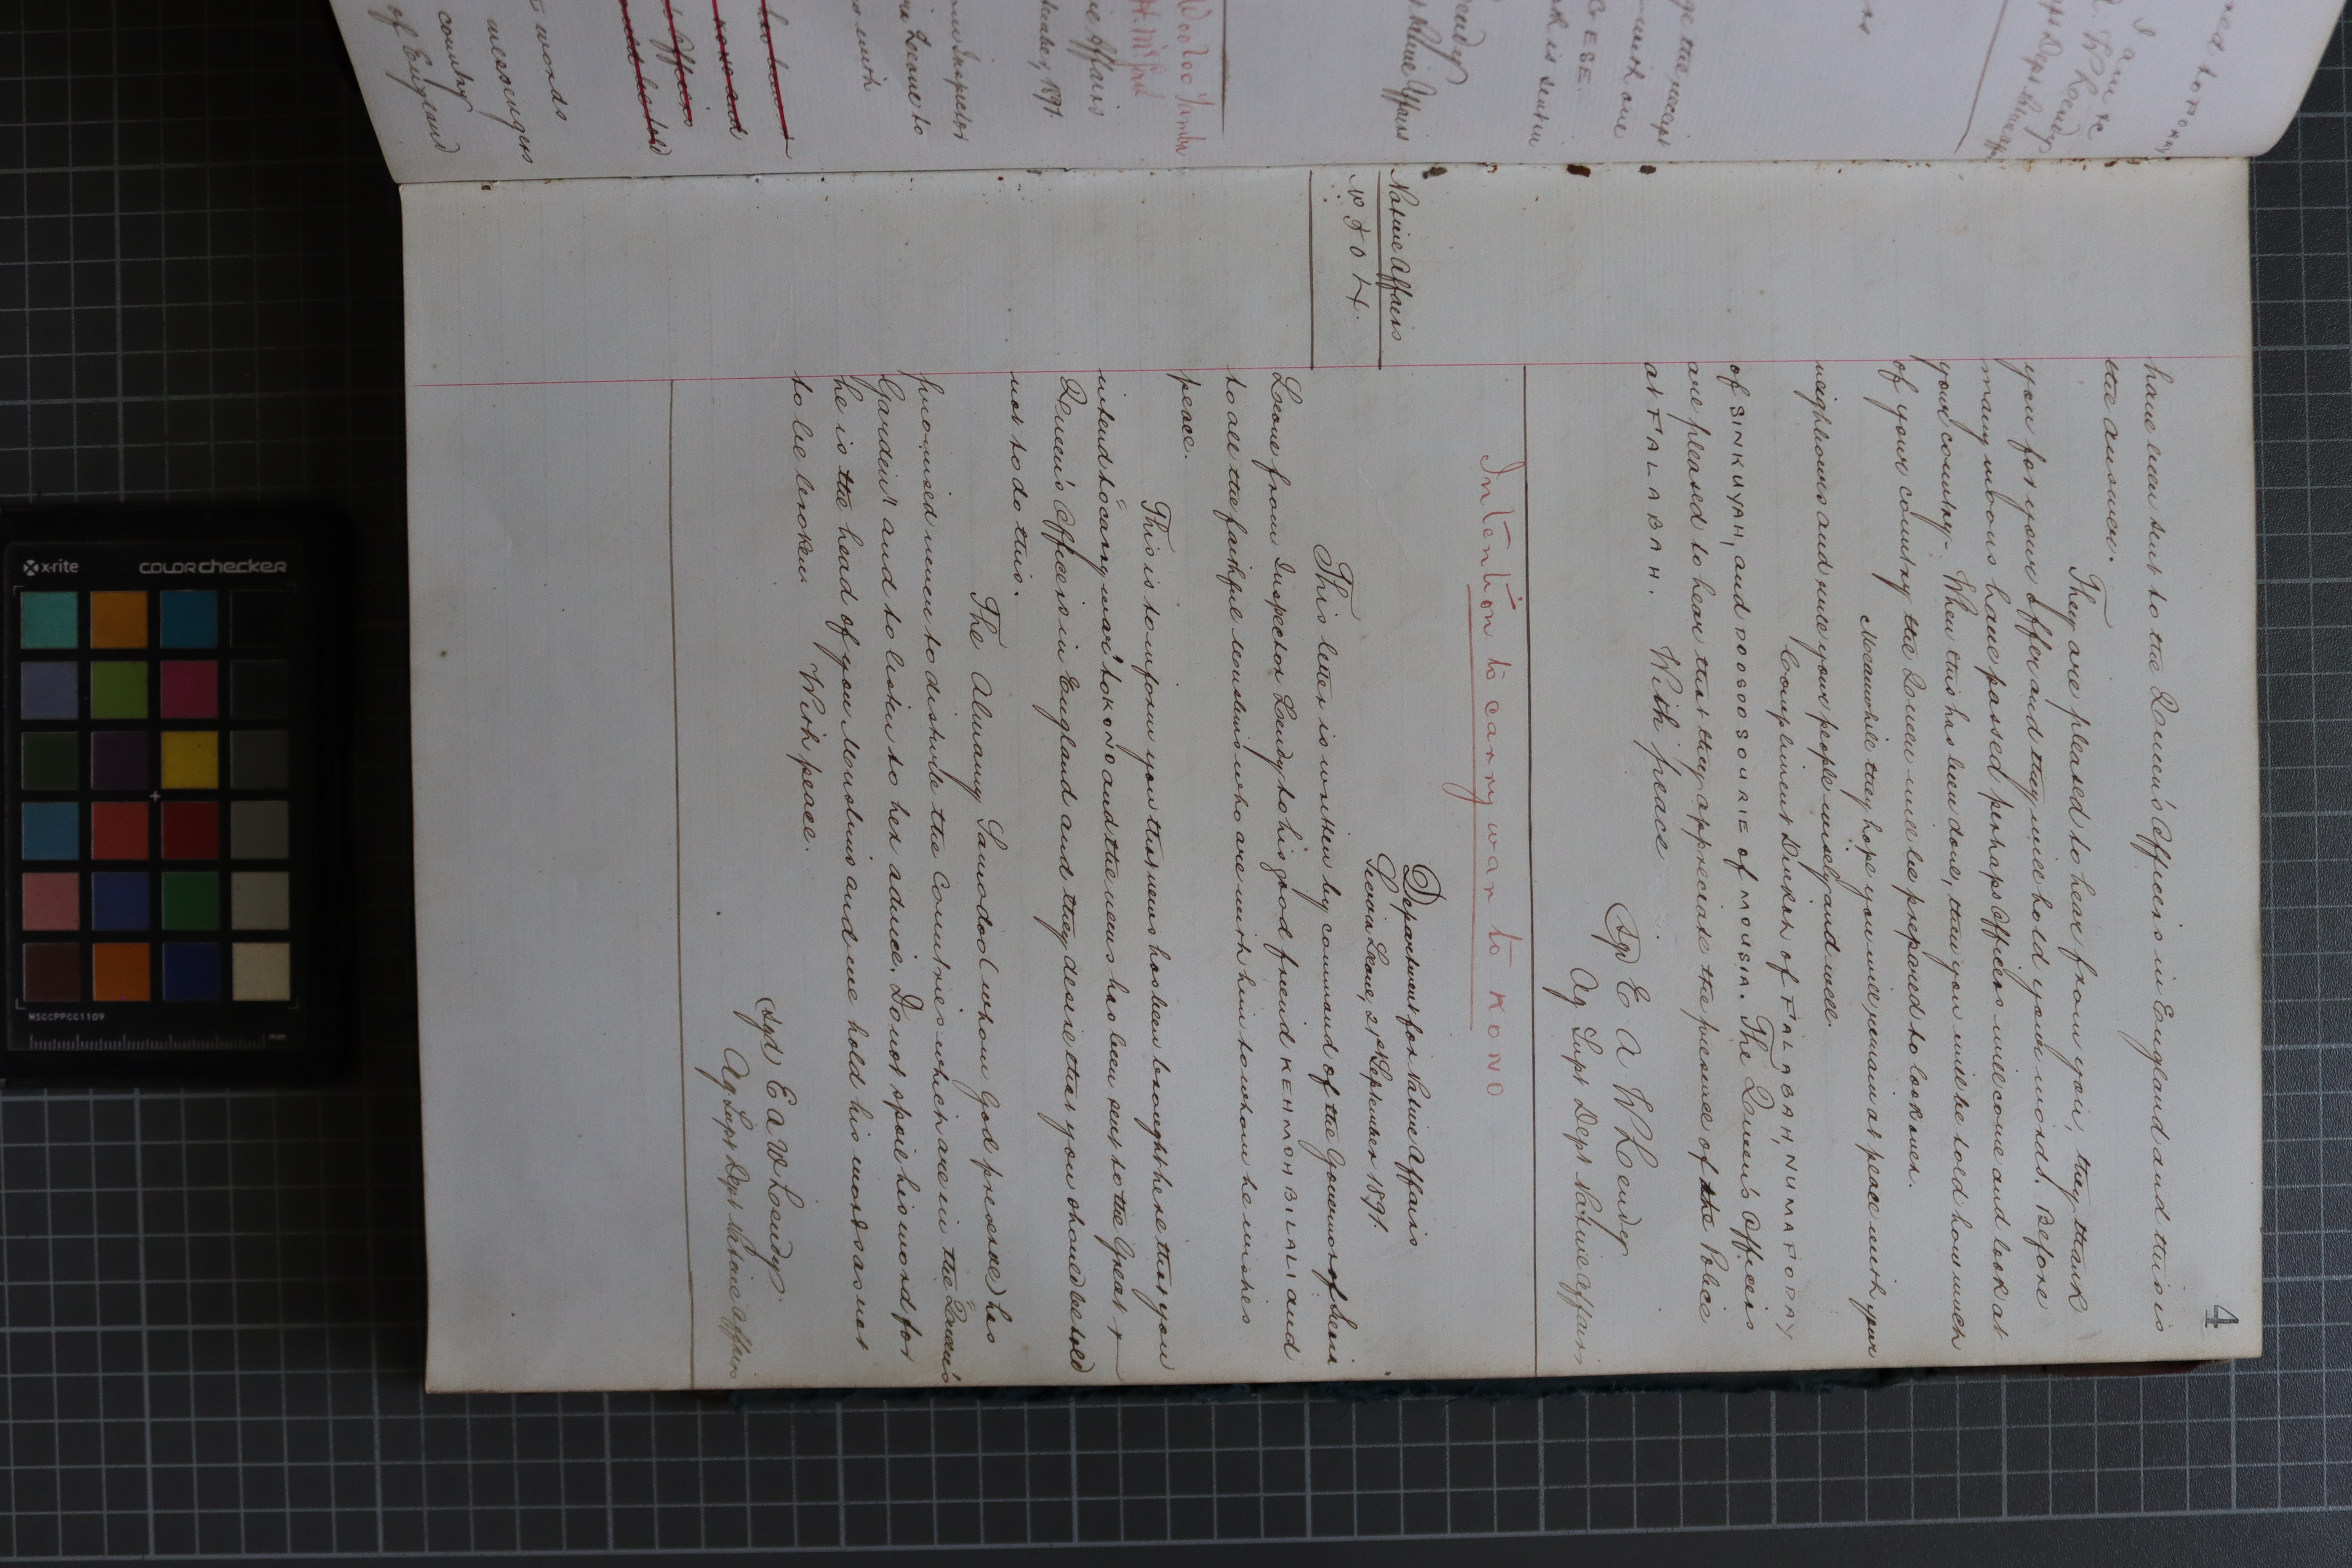 4
have been sent to the Queen's Officers in England and this is
the answer.
They are pleased to hear from you, they thank
you for your offer and they will hold your words. Before
many moons have passed perhaps Officers will come and look at
your country. When this has been done, then you will be told how much
of your country the Queen will be prepared to look over.
Meanwhile they hope you will remain at peace with your
neighbours and rule your people wisely and well.
Compliment DURKAH of FALABAH, NUMAFODAY
of SINKUYAH, and POOGOO SOURIE of MOUSIA. The Queen's Officers
are pleased to hear that they appreciate the presence of the Police
at FALABAH. With peace
Sgd E A W Lendy
Ag Supt Dept Native Affairs
Intention to carry war to KONO
Department for Native Affairs
Sierra Leone, 21st September 1891.
Native Affairs
No 504.
This letter is written by command of the Governor of Sierra
Leone from Inspector Lendy to his good friend KEHMOH BILALI and
to all the faithful Muslims who are with him to whom he wishes
peace.
This is to inform you that news has been brought here that you
intend to "carry war" to KONO and the news has been sent to the Great +
Queen's Officers in England and they desire that you should be told
not to do this.
The Almamy Samodoo (whom God preserve) has
promised never to disturb the countries which are in the "Queen's
Garden" and to listen to her advice. Do not spoil his word for
he is the head of you Muslims and we hold his words as not
to be broken. With peace.
Sgd E A W Lendy.
Ag Supt Dept Native Affairs
I am &c
Woo Loo Yamba
Native Affairs
words
messengers
country
of England
x-rite
colorchecker
MSCCPPCC1109
mm